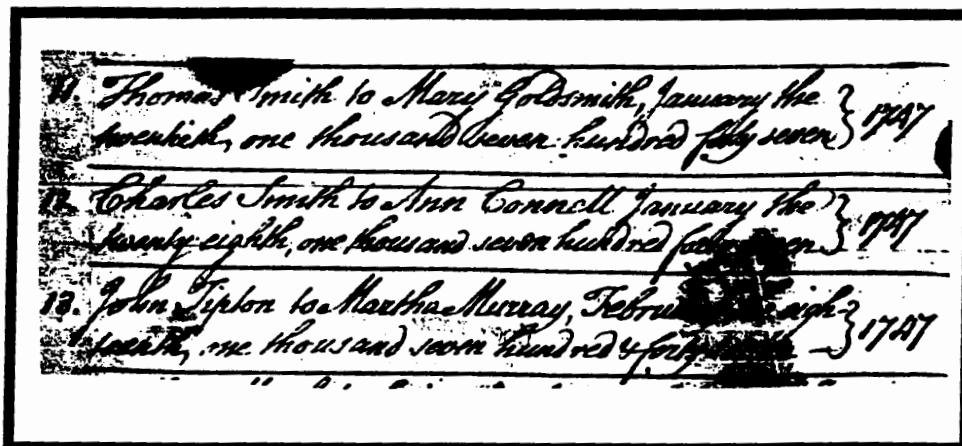 11. Thomas Smith to Mary Goldsmith, January the
twentieth, one thousand seven hundred forty seven } 1747
12. Charles Smith to Ann Connell January the
twenty eighth, one thousand seven hundred } 1747
13. John Tipton to Martha Murray, eigh-
teenth, one thousand seven hundred & forty } 1747